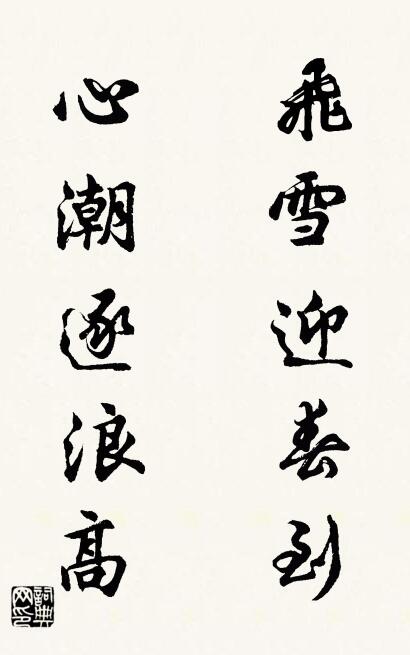 飛雪迎春到
心潮逐浪高
詞典網印